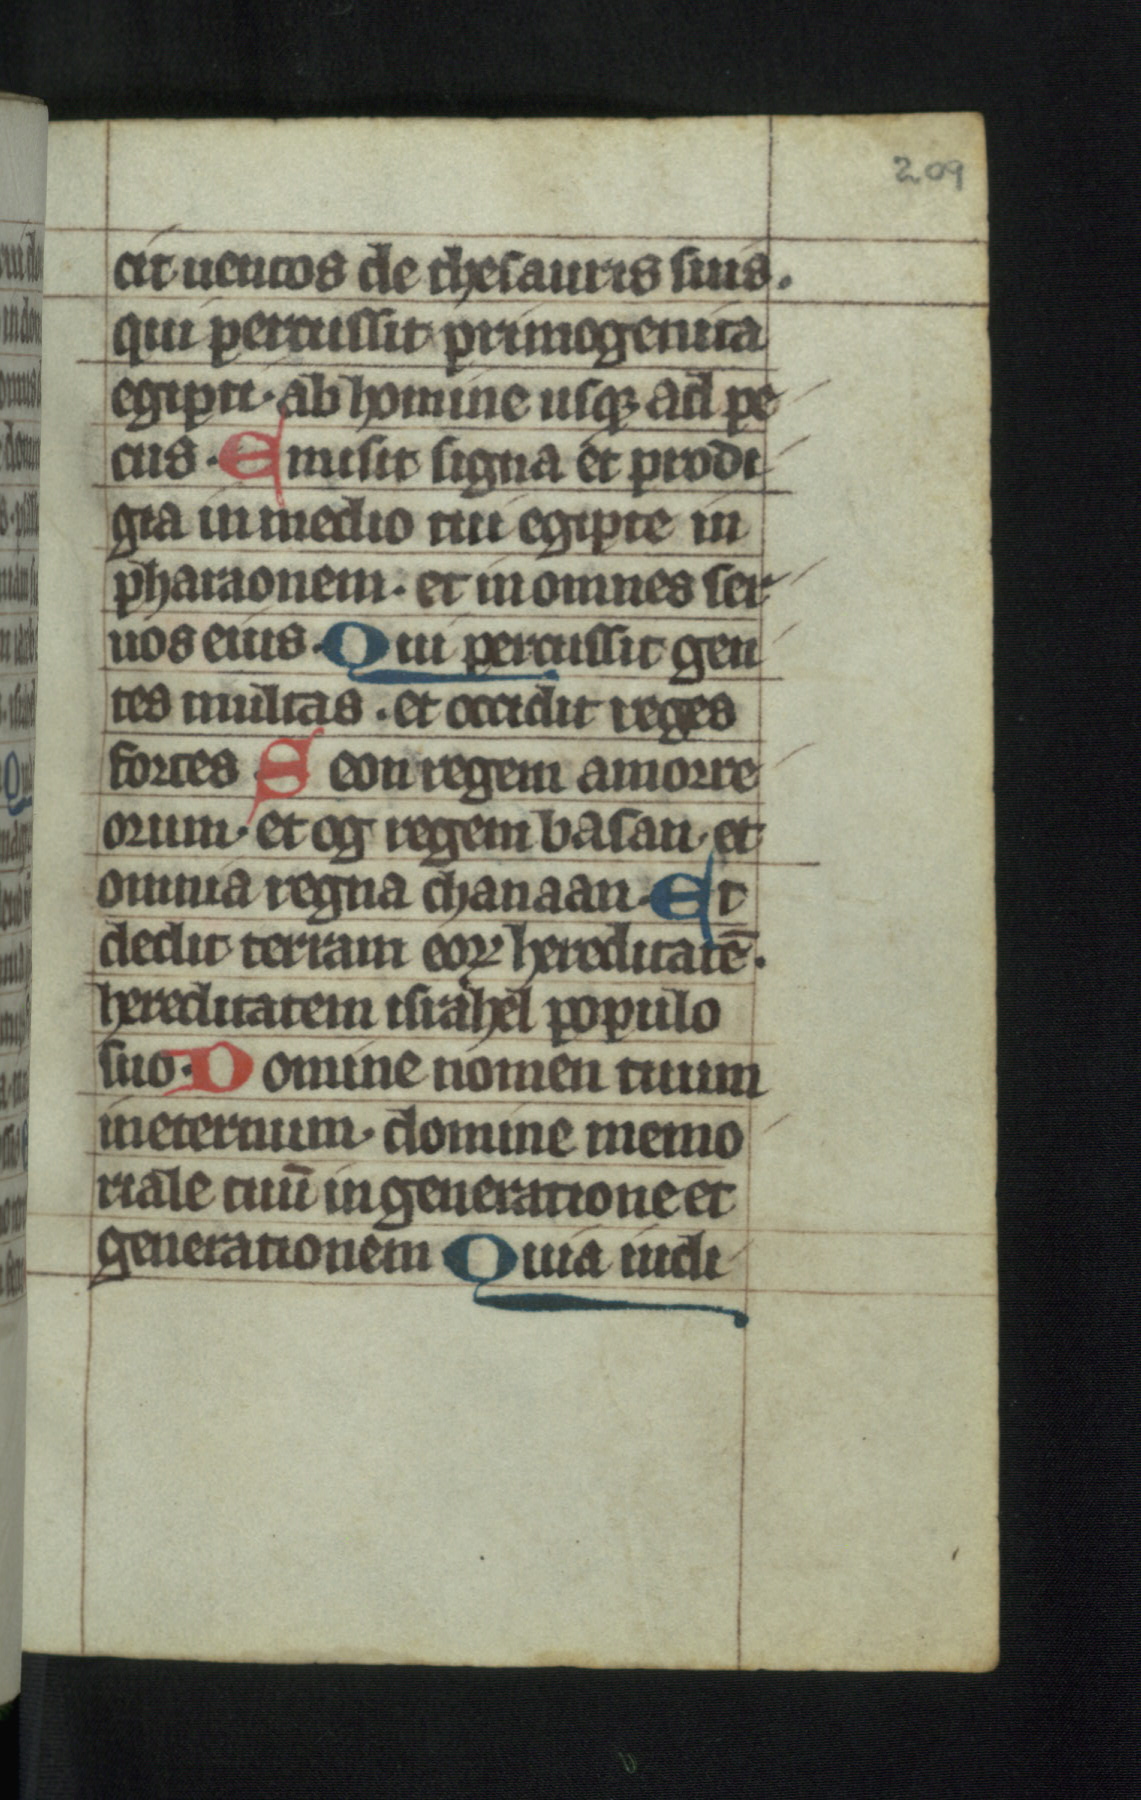 209
cit uentos de thesauris suis.
qui percussit primogenita
egipti · ab homine usq; ad pe
cus · Emisit signa et prodi
gia in medio tui egipte in
pharaonem · et in omnes ser
uos eius · Qui percussit gen
tes multas · et occidit reges
fortes Seon regem amorre
orum · et og regem basan · et
omnia regna chanaan · Et
dedit terram eoꝝ hereditatē ·
hereditatem israhel populo
suo · Domine nomen tuum
in eternum · domine memo
riale tuū in generatione et
generationem Quia iudi